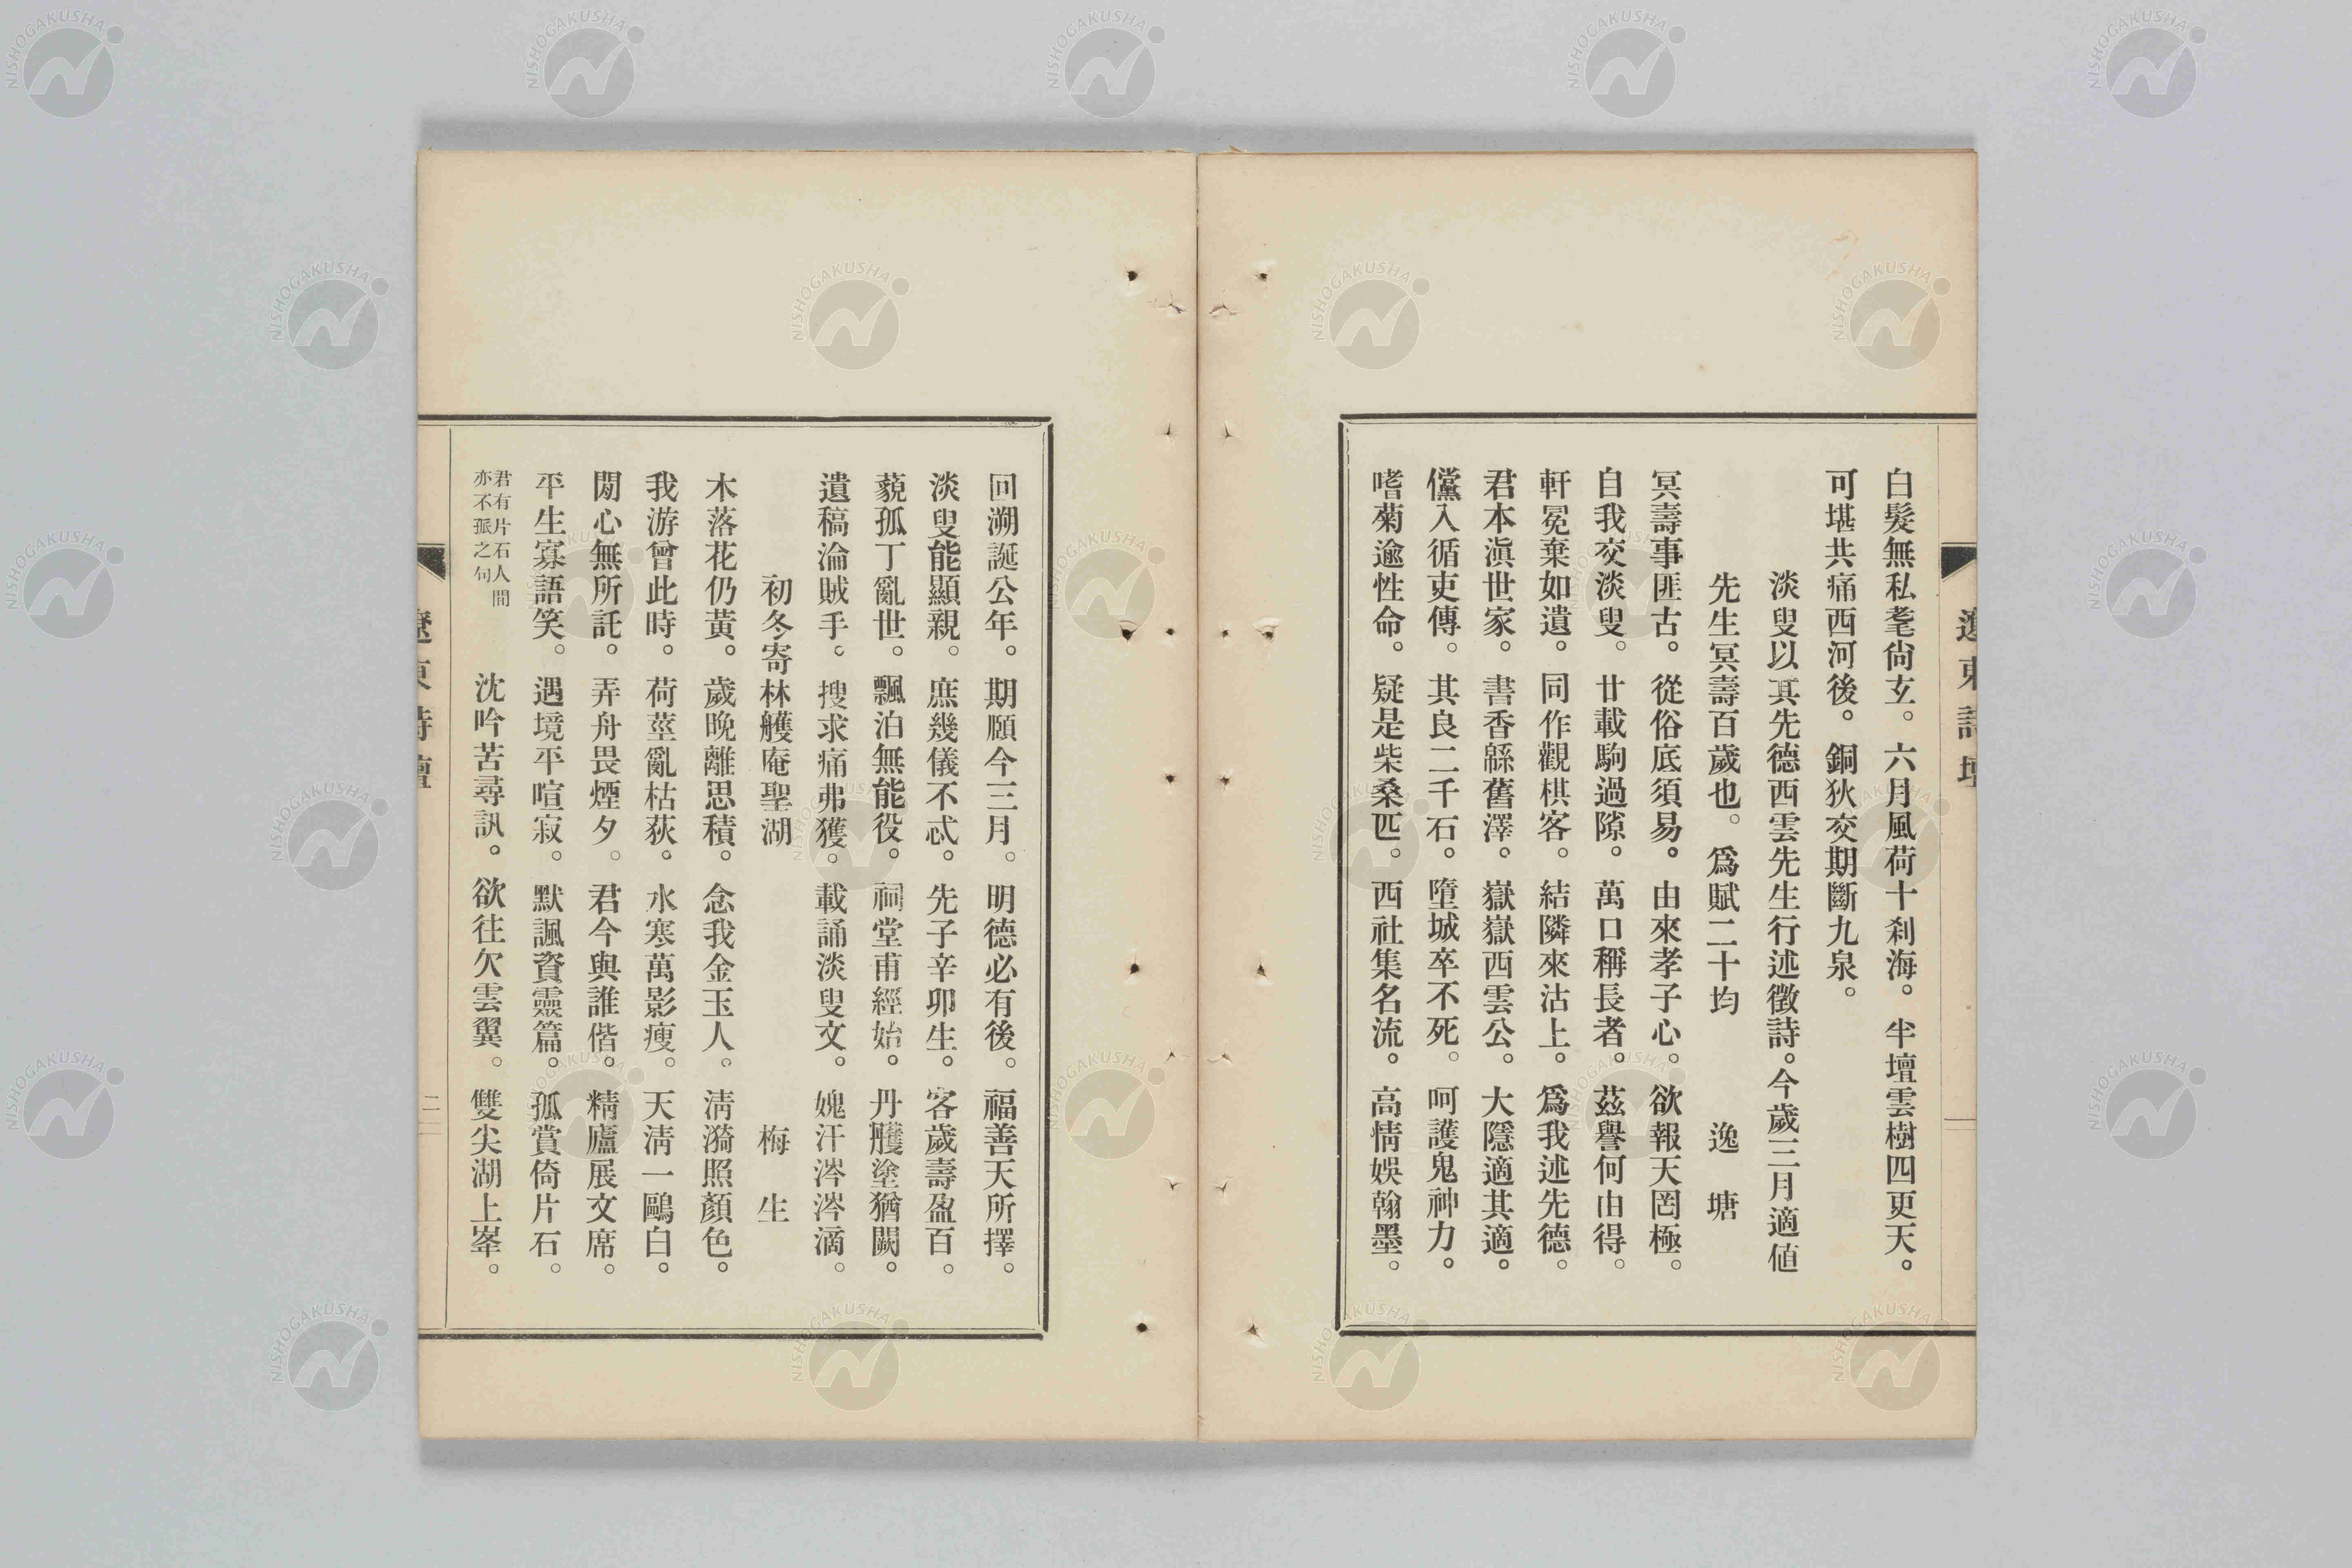 白髮無私耄尙玄。六月風荷十刹海。半壇雲樹四更天。
可堪共痛西河後。銅狄交期斷九泉。
淡叟以其先德西雲先生行述徵詩。今歲三月適値
先生冥壽百歲也。爲賦二十均 逸塘
冥壽事匪古。從俗底須易。由來孝子心。欲報天罔極。
自我交淡叟。廿載駒過隙。萬口稱長者。茲譽何由得。
軒冕棄如遺。同作觀棋客。結隣來沽上。爲我述先德。
君本滇世家。書香緜舊澤。嶽嶽西雲公。大隱適其適。
儻入循吏傳。其良二千石。墮城卒不死。呵護鬼神力。
嗜菊逾性命。疑是柴桑匹。西社集名流。高情娛翰墨。
遼東詩壇
回溯誕公年。期願今三月。明德必有後。福善天所擇。
淡叟能顯親。庶幾儀不忒。先子辛卯生。客歲壽盈百。
藐孤丁亂世。飄泊無能役。祠堂甫經始。丹雘塗猶闕。
遺稿淪賊手。搜求痛弗獲。載誦淡叟文。媿汗涔涔滴。
初冬寄林艧庵聖湖 梅生
木落花仍黃。歲晚離思積。念我金玉人。淸漪照顏色。
我游曾此時。荷莖亂枯荻。水寒萬影瘦。天淸一鷗白。
閒心無所託。弄舟畏煙夕。君今與誰偕。精廬展文席。
平生寡語笑。遇境平喧寂。默諷資靈篇。孤賞倚片石。
君有片石人間
亦不孤之句
沈吟苦尋訊。欲往欠雲翼。雙尖湖上峯。
遼東詩壇
二
NISHOGAKUSHA